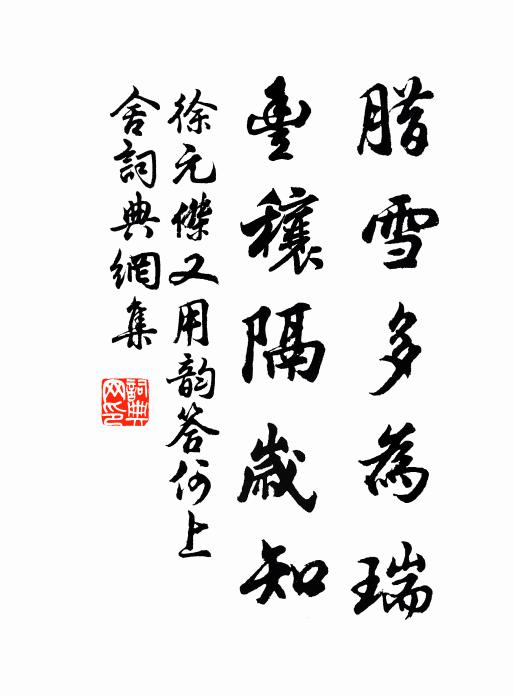 腊雪多為瑞
豐穰隔歲知
徐元傑又用韵答何上
舍詞典網集
詞典網印